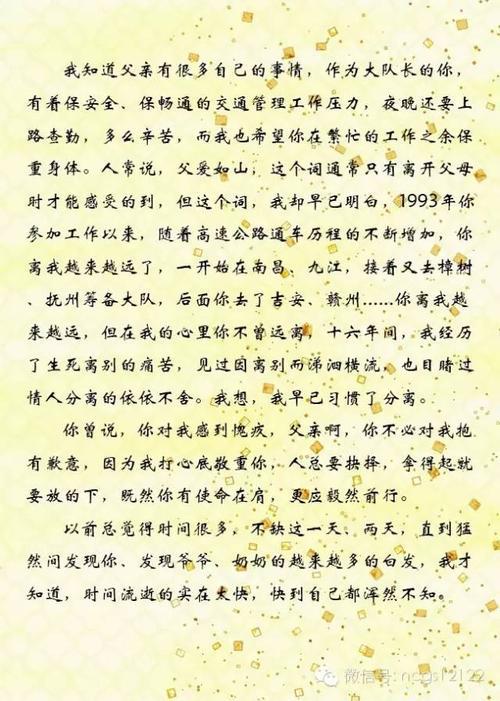 我知道父亲有很多自己的事情，作为大队长的你，
有着保安全、保畅通的交通管理工作压力，夜晚还要上
路查勤，多么辛苦，而我也希望你在繁忙的工作之余保
重身体。人常说，父爱如山，这个词通常只有离开父母
时才能感受的到，但这个词，我却早已明白，1993年你
参加工作以来，随着高速公路通车历程的不断增加，你
离我越来越远了，一开始在南昌、九江，接着又去樟树
、抚州筹备大队，后面你去了吉安、赣州……你离我越
来越远，但在我的心里你不曾远离，十六年间，我经历
了生死离别的痛苦，见过因离别而涕泗横流，也目睹过
情人分离的依依不舍。我想，我早已习惯了分离。
你曾说，你对我感到愧疚，父亲啊，你不必对我抱
有歉意，因为我打心底敬重你，人总要抉择，拿得起就
要放的下，既然你有使命在肩，更应毅然前行。
以前总觉得时间很多，不缺这一天、两天，直到猛
然间发现你、发现爷爷、奶奶的越来越多的白发，我才
知道，时间流逝的实在太快，快到自己都浑然不知。
微信号: ncgs12122